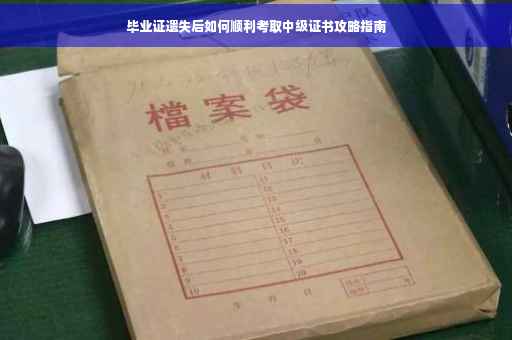 毕业证遗失后如何顺利考取中级证书攻略指南
檔案袋
材料目次
1 11
2 12
3 13
4 14
5 15
6 16
7 17
8 18
9 19
10 20
年 月 日